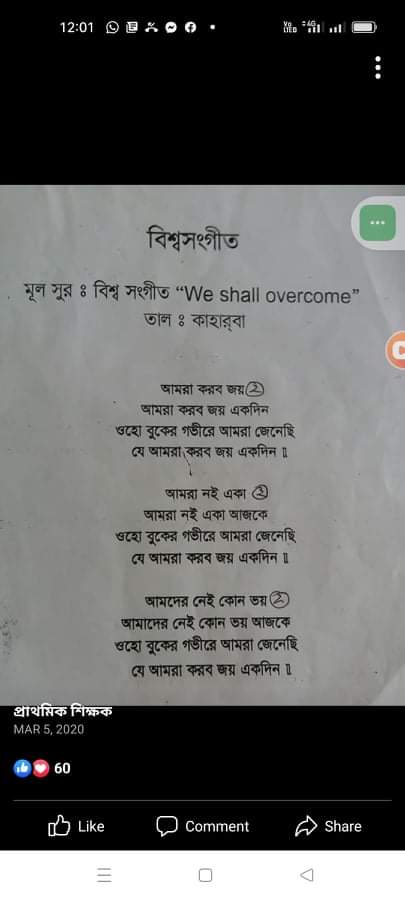 12:01
Vo LTE 4G
বিশ্বসংগীত
মূল সুর ঃ বিশ্ব সংগীত “We shall overcome”
তাল ঃ কাহার্‌বা
আমরা করব জয় ২
আমরা করব জয় একদিন
ওহো বুকের গভীরে আমরা জেনেছি
যে আমরা করব জয় একদিন ॥
আমরা নই একা ২
আমরা নই একা আজকে
ওহো বুকের গভীরে আমরা জেনেছি
যে আমরা করব জয় একদিন ॥
আমদের নেই কোন ভয় ২
আমাদের নেই কোন ভয় আজকে
ওহো বুকের গভীরে আমরা জেনেছি
যে আমরা করব জয় একদিন ॥
প্রাথমিক শিক্ষক
MAR 5, 2020
60
Like Comment Share